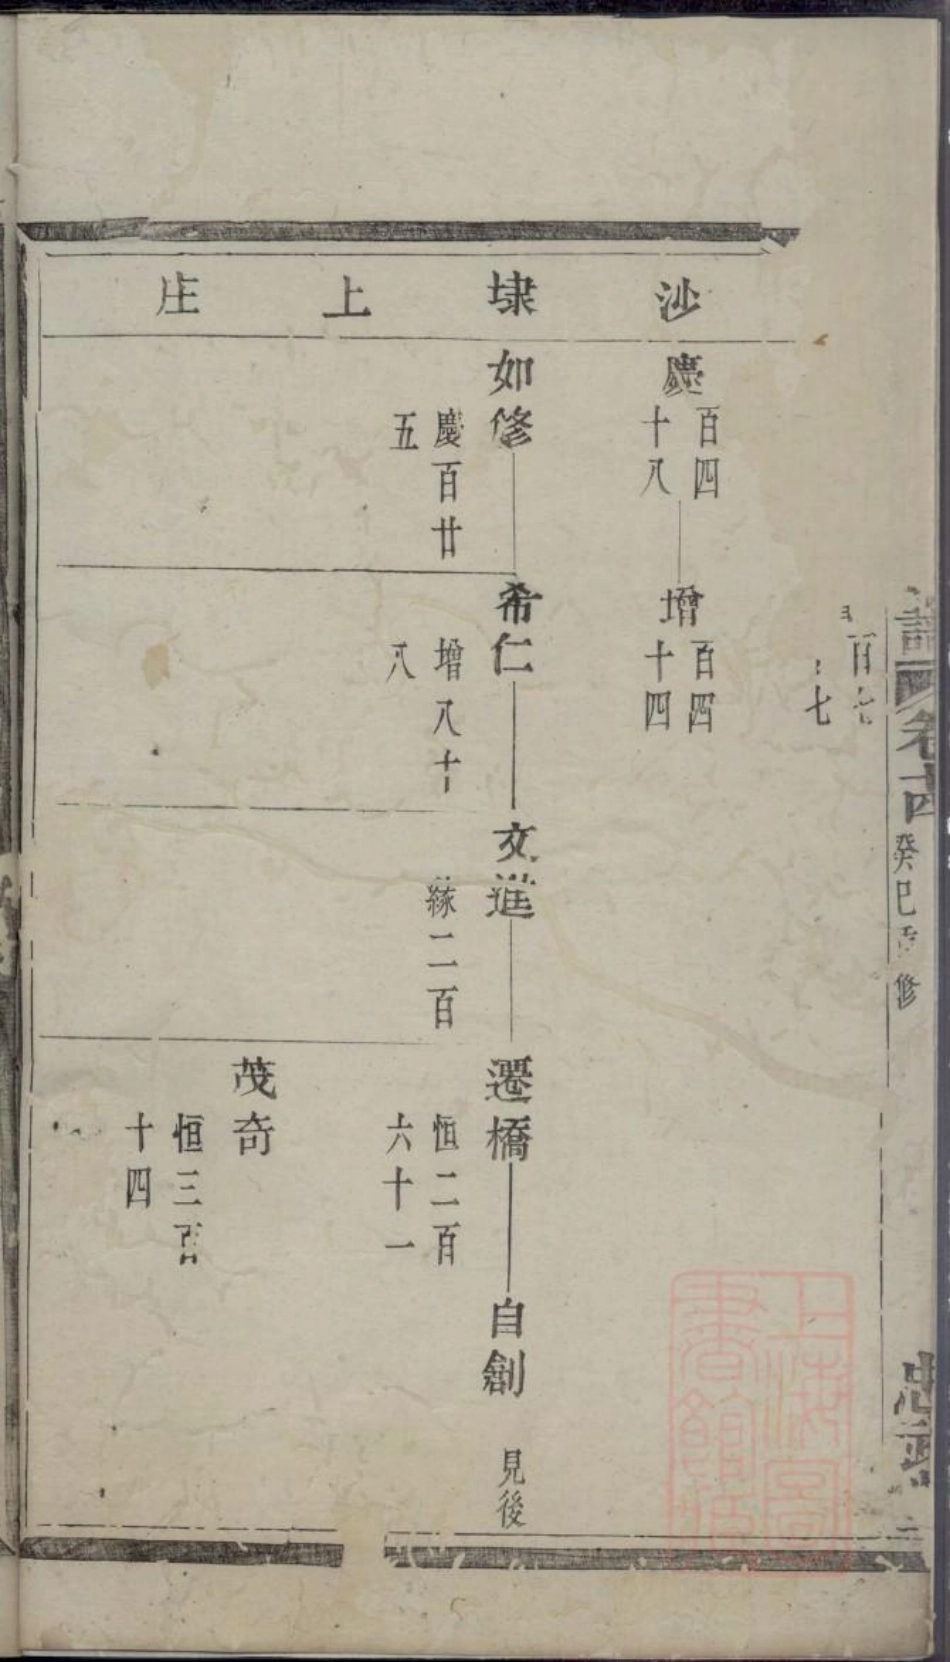 沙埭上庄
慶百四十八
增百四十四
如修
慶百廿五
希仁
增八十八
文進
二百
遷橋
恒二百六十一
自創
見後
茂奇
恒三百十四
卷十四
癸巳重修
上海圖書館藏